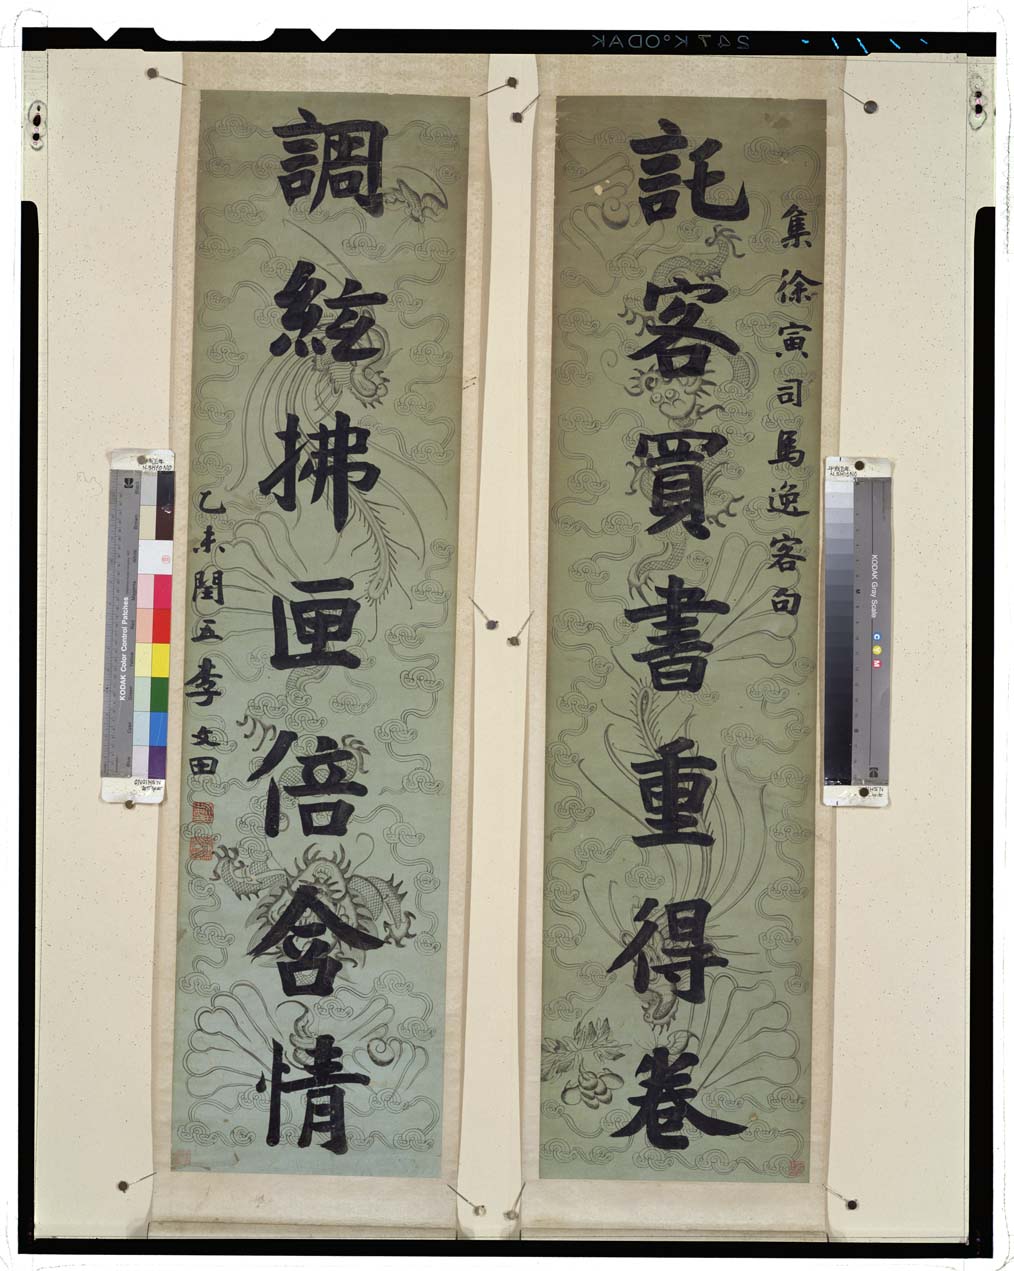 集徐寅司馬逸客句
託客買書重得卷
調絃拂匣倍含情
乙未閏五李文田
KODAK Color Control Patches
KODAK Gray Scale
C Y M
247 KODAK